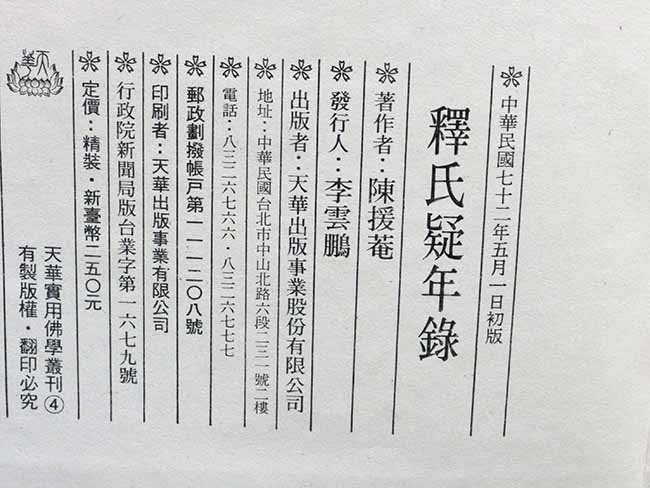 中華民國七十二年五月一日初版
釋氏疑年錄
著作者：陳援菴
發行人：李雲鵬
出版者：天華出版事業股份有限公司
地址：中華民國台北市中山北路六段二三一號二樓
電話：八三二六七六六・八三二六七七七
郵政劃撥帳戶第一一一二〇八號
印刷者：天華出版事業有限公司
行政院新聞局版台業字第一六七九號
定價：精裝・新臺幣二五〇元
天華實用佛學叢刊④
有製版權・翻印必究
天華